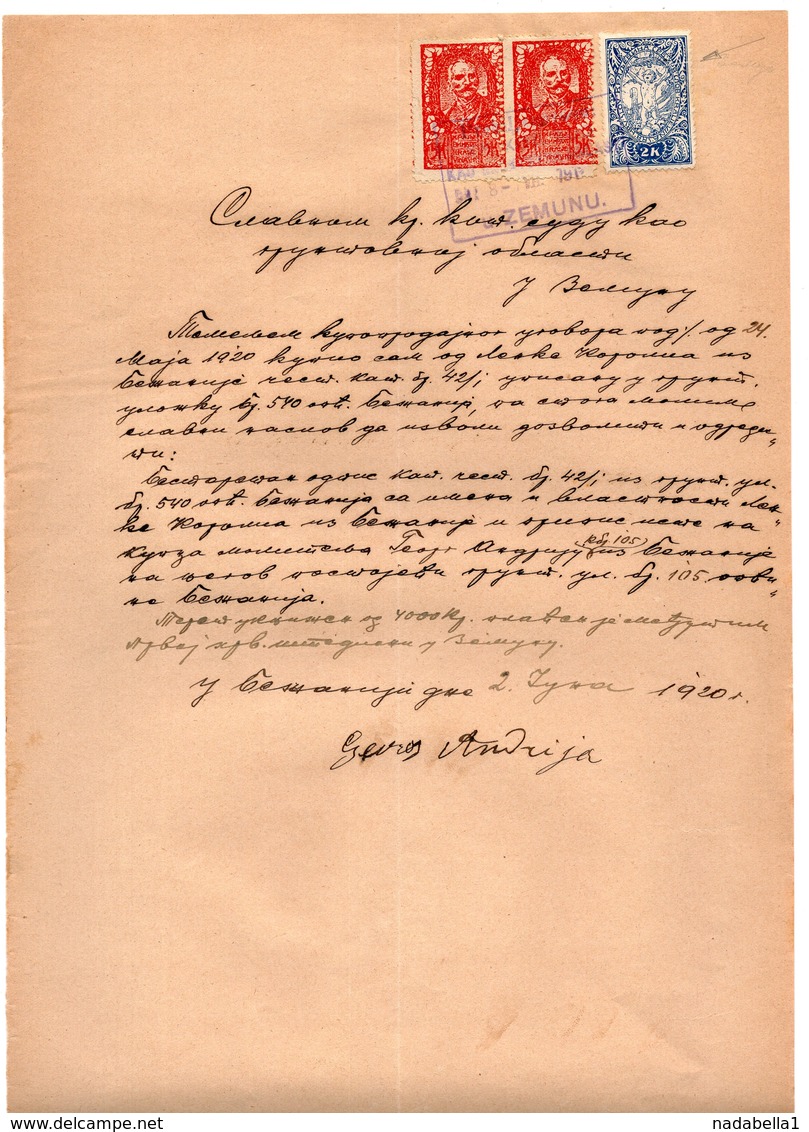 5K 5K 2K
ZEMUNU.
Славном кр. кот. суду као
грунтовној области
у Земуну
Темељем купопродајног уговора под ·/. од 24.
маја 1920 купио сам од Ленке Королиа из
Бежаније чест. кат. бр. 42/i уписану у грунт.
уложку бр. 540 опћ. Бежанија, па стога молим
славни наслов да изволи дозволити и одреди„
ти:
Бестеретан одпис кат. чест. бр. 42/i из грунт. ул.
бр. 540 опћ. Бежанија са имена и властности Лен„
ке Королиа из Бежаније и припис исте на
купца молитеља Георг Андрију из Бежаније
кбр 105
на његов постојећи грунт. ул. бр. 105 опћи„
не Бежанија.
Терет укњижен од 4000 Кр. плаћен је међутим
Првој хрв. штедиони у Земуну.
У Бежанији дне 2. Јуна 1920 г.
Georg Andrija
delcampe.net
nadabella1